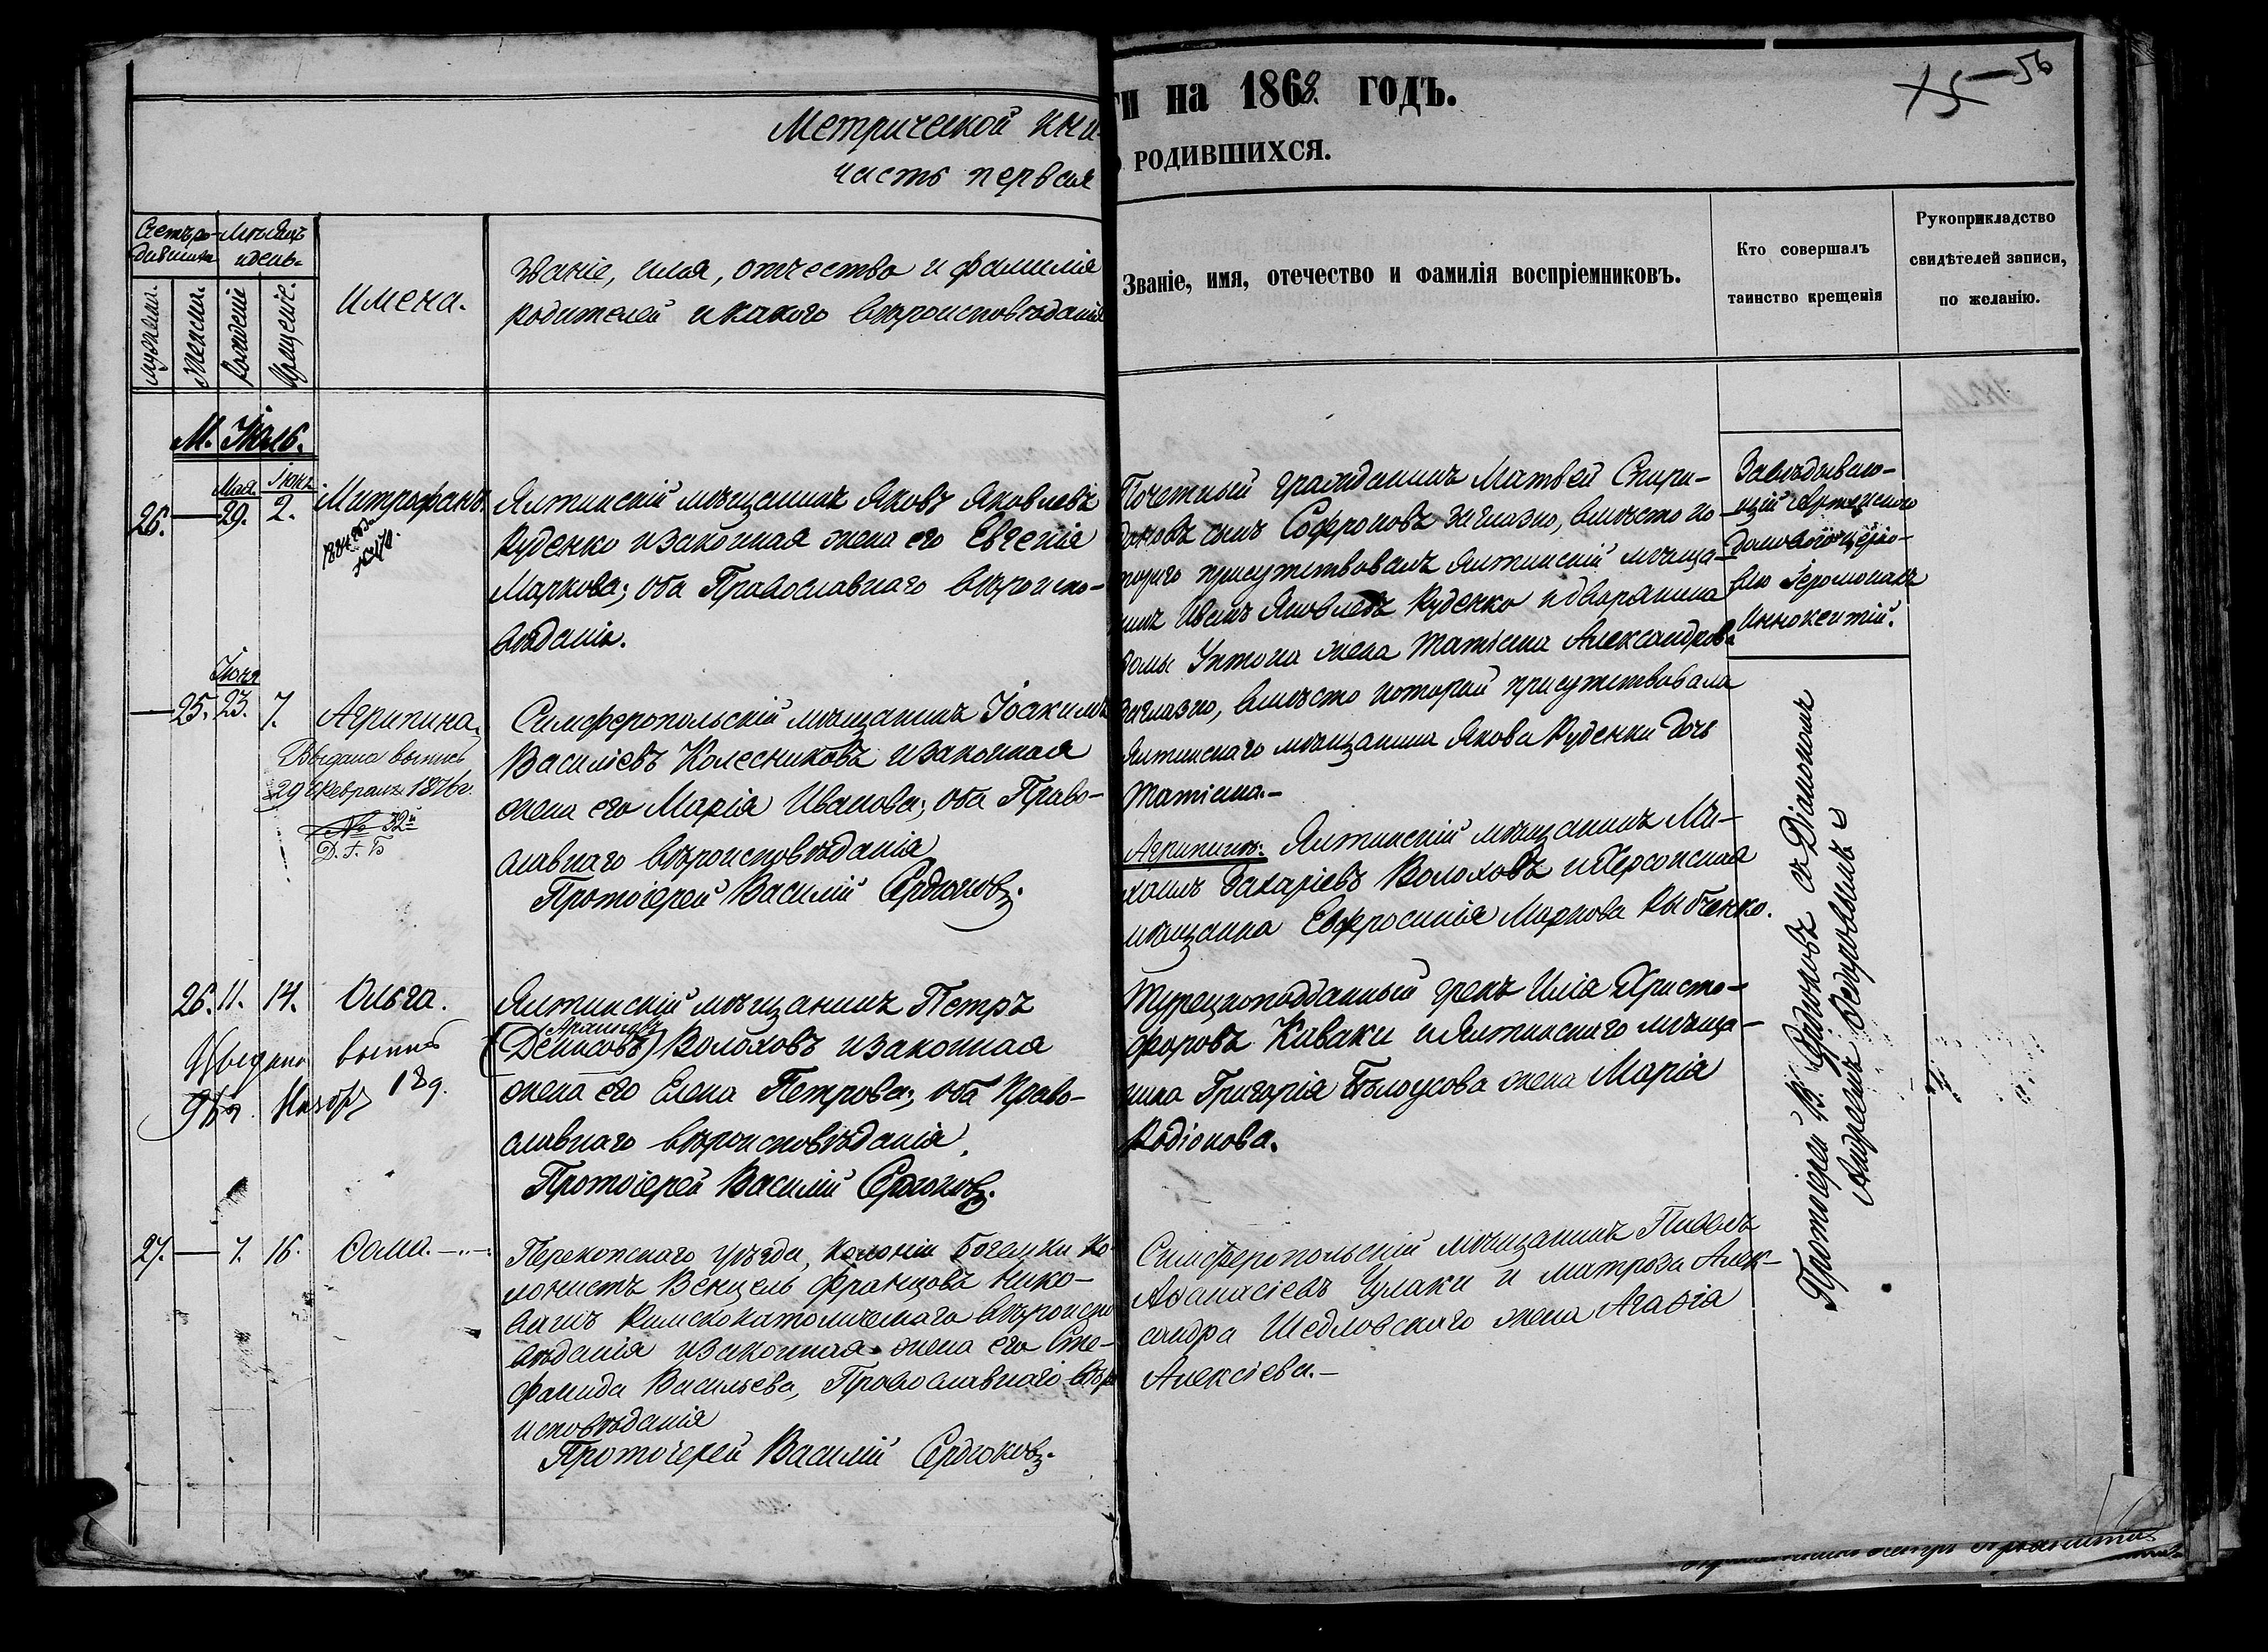 Метрической кни-
часть первая
ги на 1868 годъ.
О РОДИВШИХСЯ.
56
Счетъ ро-
дившихся
Мѣсяцъ
и день.
мужеска.
женска.
Рожденіе
Крещеніе.
Имена.
Званіе, имя, отчество и фамилія
родителей и какого вѣроисповѣданія
Званіе, имя, отечество и фамилія воспріемниковъ.
Кто совершалъ
таинство крещенія
Рукоприкладство
свидѣтелей записи,
по желанію.
М. Іюль.
Мая
Іюля
26. — 29. 2. Митрофанъ.
Ялтинскій мѣщанинъ Яковъ Яковлевъ
Руденко и законная жена его Евгенія
Маркова; оба Православнаго вѣроиспо-
вѣданія.
Почетный гражданинъ Матвей Спири-
доновъ сынъ Софроновъ заглазно, вмѣсто ко-
тораго присутствовалъ Ялтинскій мѣща-
нинъ Иванъ Яковлевъ Руденко и дворянина
жена Татіана Александрова
заглазно, вмѣсто которой присутствовала
Ялтинскаго мѣщанина Якова Руденки дочь
Татіана.—
Завѣдываю-
щій
домовою церко-
вію Іеромонахъ
Иннокентій.
Іюня
— 25. 23. 7. Агрипина.
Выдана выпись
29 Февраля 1876 г.
№ 32й
Д. Г. Б
Симферопольскій мѣщанинъ Іоакимъ
Василіевъ Колесниковъ и законная
жена его Марія Иванова; оба Право-
славнаго вѣроисповѣданія
Протоіерей Василій Сердюковъ.
Агрипины: Ялтинскій мѣщанинъ Ми-
хаилъ Захаріевъ Волоховъ и Херсонская
мѣщанка Евфросинія Маркова Рыбченко.
26. 11. 14. Ольга.
Выдана выпись
Ноябр
Ялтинскій мѣщанинъ Петръ
(Денисовъ) Волоховъ и законная
жена его Елена Петрова; оба Право-
славнаго вѣроисповѣданія.
Протоіерей Василій Сердюковъ.
Турецкоподданный грекъ Илія Христо-
форовъ Каваки и Ялтинскаго мѣща-
нина Григорія Бѣлоусова жена Марія
Родіонова.
Протоіерей В. Сердюковъ съ Діакономъ
Андреемъ
27. — 7. 16. Ѳома.—
Перекопскаго уѣзда, колоніи Богемки ко-
лонистъ Венцель Францовъ Нико-
Римскокатолическаго вѣроиспо-
вѣданія и законная жена его Сте-
фанида Васильева, Православнаго вѣро
исповѣданія
Протоіерей Василій Сердюковъ.
Симферопольскій мѣщанинъ Павелъ
Аѳанасіевъ Чулаки и матроза Алек-
сандра Шедловскаго жена Агаѳія
Алексіева.—